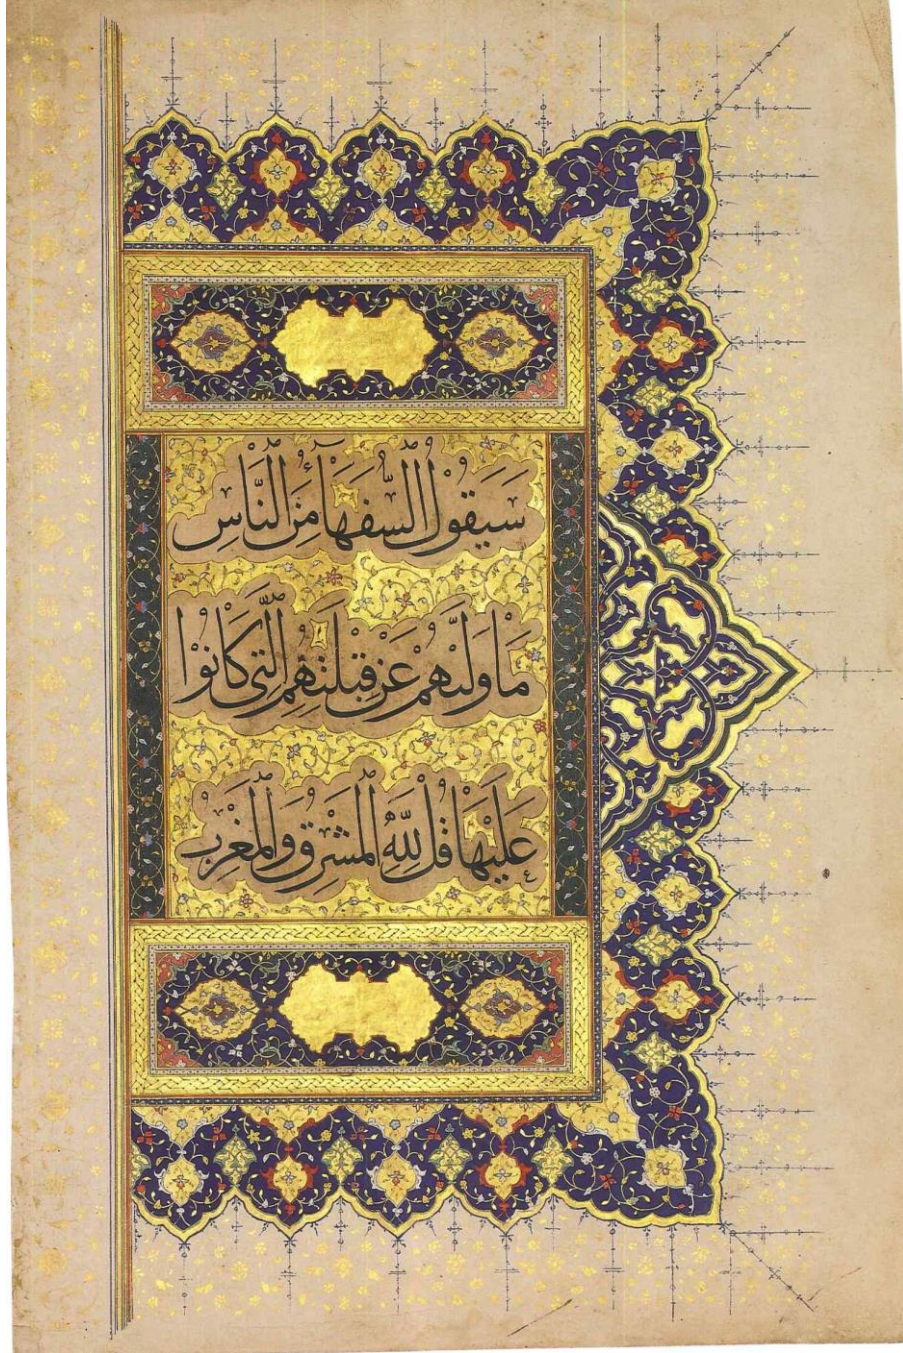 سَيَقُولُ السُّفَهَاءُ مِنَ النَّاسِ
مَا وَلَّىٰهُمْ عَنْ قِبْلَتِهِمُ الَّتِي كَانُوا
عَلَيْهَا قُلْ لِلَّهِ الْمَشْرِقُ وَالْمَغْرِبُ